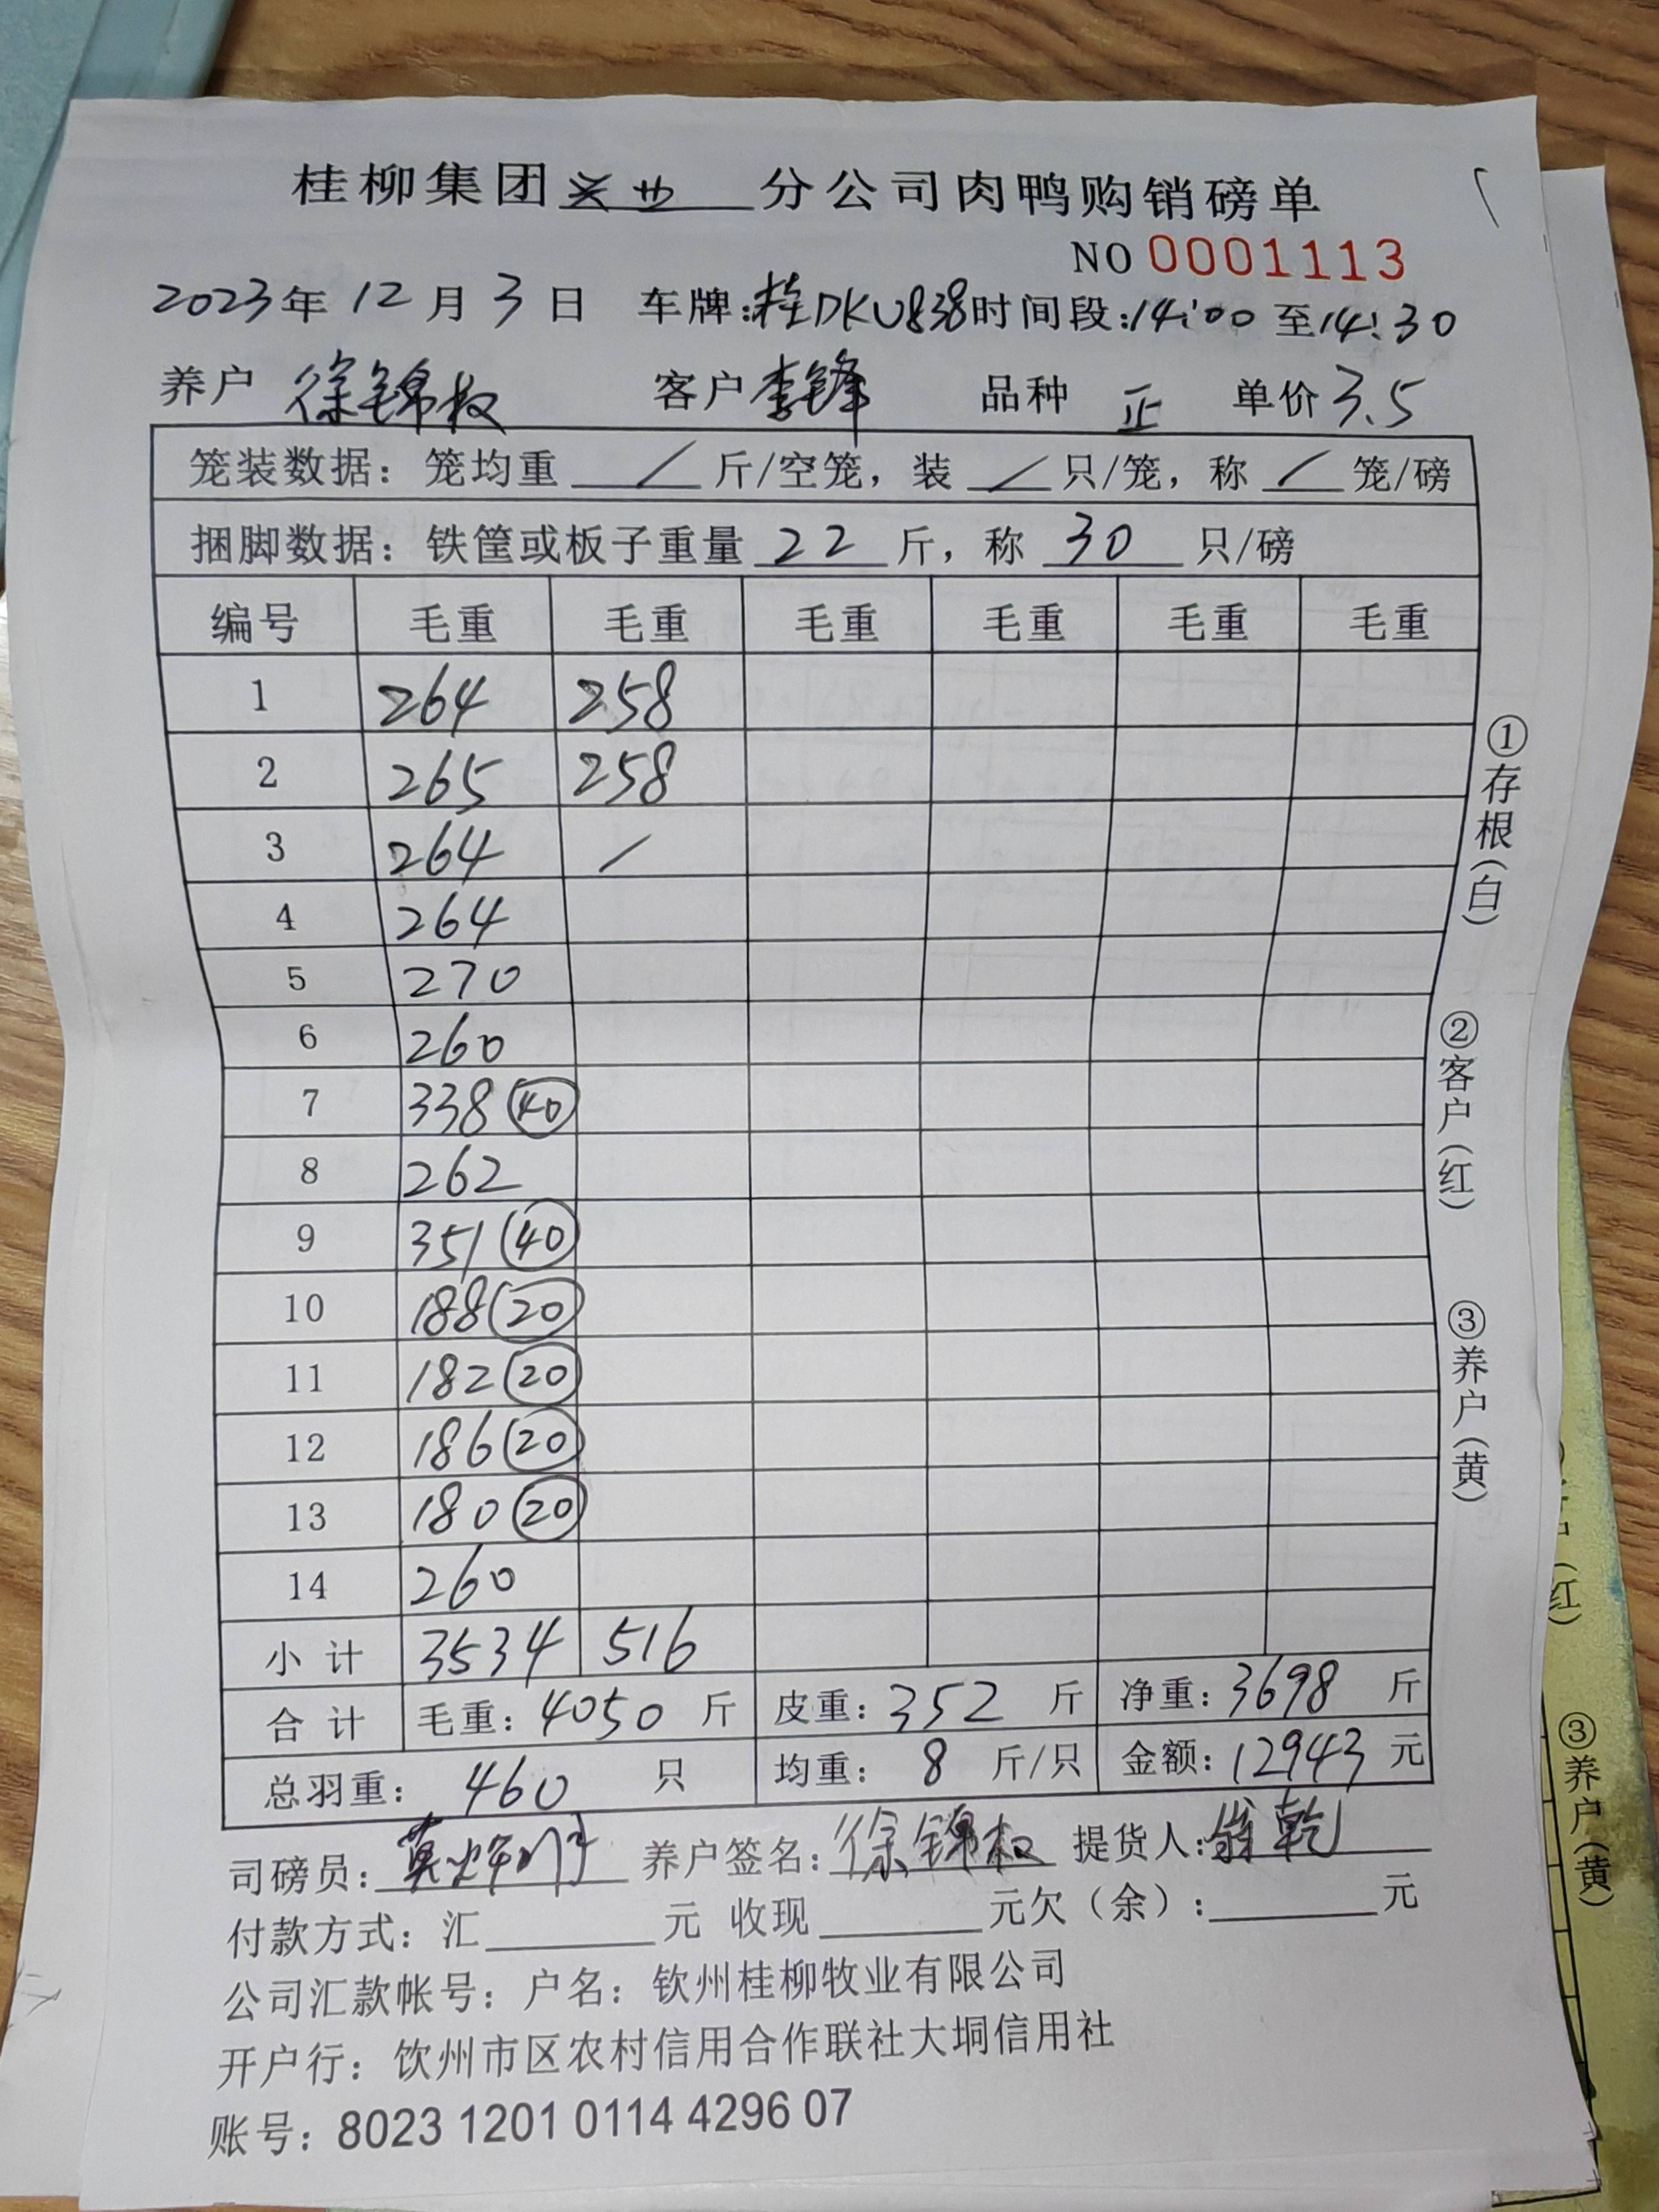 桂柳集团 兴业 分公司肉鸭购销磅单
NO 0001113
2023年 12 月 3 日 车牌:桂DKU838 时间段:14:00 至 14:30
养户 徐锦权 客户 李锋 品种 正 单价 3.5
笼装数据: 笼均重 / 斤/空笼, 装 / 只/笼, 称 / 笼/磅
捆脚数据: 铁筐或板子重量 22 斤, 称 30 只/磅
编号 毛重 毛重 毛重 毛重 毛重 毛重
1 264 258
2 265 258
3 264 /
4 264
5 270
6 260
7 338 (40)
8 262
9 351 (40)
10 188 (20)
11 182 (20)
12 186 (20)
13 180 (20)
14 260
小 计 3534 516
合 计 毛重: 4050 斤 皮重: 352 斤 净重: 3698 斤
总羽重: 460 只 均重: 8 斤/只 金额: 12943 元
司磅员: 养户签名: 徐锦权 提货人: 乾
付款方式: 汇 元 收现 元欠(余): 元
公司汇款帐号: 户名: 钦州桂柳牧业有限公司
开户行: 饮州市区农村信用合作联社大垌信用社
账号: 8023 1201 0114 4296 07
①存根(白)
②客户(红)
③养户(黄)
红)
③养户(黄)